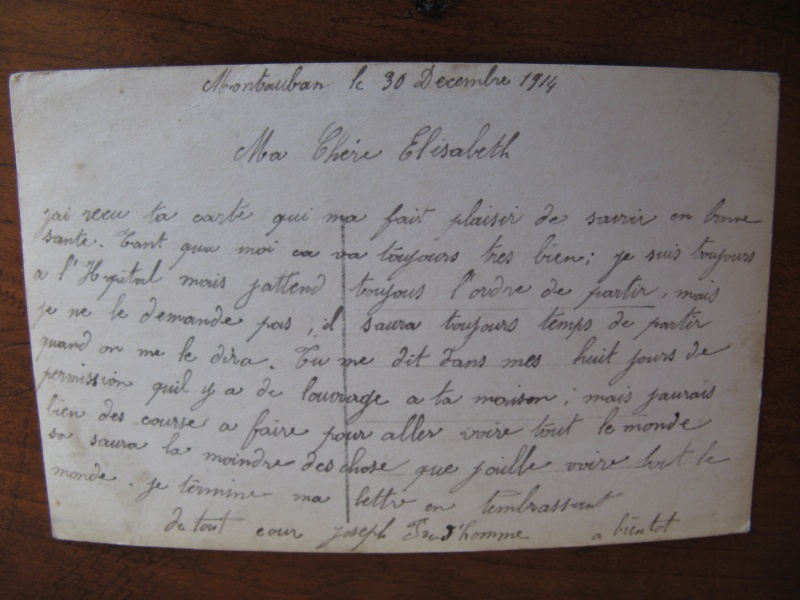 Montauban le 30 Decembre 1914
Ma Chére Elisabeth
jai recu ta carte qui ma fait plaisir de savoir en bonne
sante. Tant qua moi ca va toujours tres bien; je suis toujours
a l'Hopital mais jattend toujous l'ordre de partir, mais
je ne le demande pas, il saura toujours temps de partir
quand on me le dira. Tu me dit dans mes huit jours de
permission quil y a de louvrage a ta maison; mais jaurais
bien des course a faire pour aller voire tout le monde
sa saura la moindre des chose que jaille voire tout le
monde. je términe ma lettre en tembrassant
de tout cour joseph a bientot